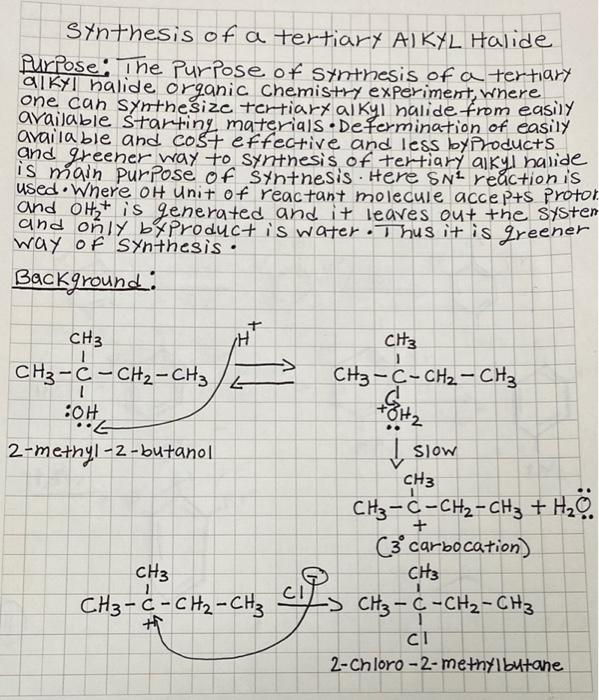 Synthesis of a tertiary Alkyl Halide
Purpose: The Purpose of synthesis of a tertiary
alkyl halide organic chemistry experiment, where
one can synthesize tertiary alkyl halide from easily
available starting materials. Determination of easily
available and cost effective and less byproducts
and greener way to synthesis of tertiary alkyl halide
is main purpose of synthesis. Here SN1 reaction is
used. Where OH unit of reactant molecule accepts Proton
and OH2+ is generated and it leaves out the system
and only byproduct is water. Thus it is greener
way of synthesis.
Background:
CH3
CH3-C-CH2-CH3
:OH
2-methyl-2-butanol
H+
CH3
CH3-C-CH2-CH3
+OH2
slow
CH3
CH3-C-CH2-CH3 + H2O
+
(3° carbocation)
CH3
CH3-C-CH2-CH3
+
Cl-
CH3
CH3-C-CH2-CH3
Cl
2-chloro-2-methylbutane